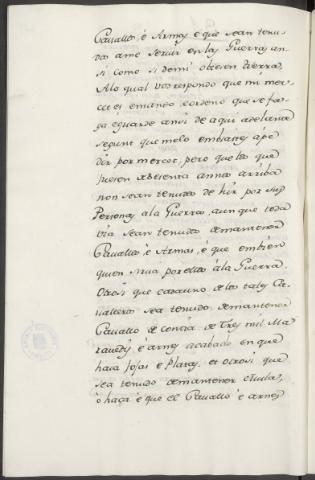 Cavallos è Armas è que sean tenu-
dos ame servir en las Guerras an-
si como si demi oviesen tierra.
Alo qual vos respondo que mi mer-
ced es emando è ordeno que se fa-
ga è guarde ansi de aqui adelante
segunt que melo embiastes ape-
dir por merced, pero que los que
fueren de setenta annos arriba
non sean tenudos de hir por sus
Personas ala Guerra, aun que toda
via sean tenudos demantener
Cavallos è Armas, è que embien
quien sirva por ellos ala Guerra.
Otrosi que cada uno de los tales Ca-
valleros sea tenudo demantener
Cavallo de contia de Tres mil Ma-
ravedis è arnes acabado en que
haia fojas è Platas, et otrosi que
sea tenudo demantener
ò haca è que el Cavallo è arnes